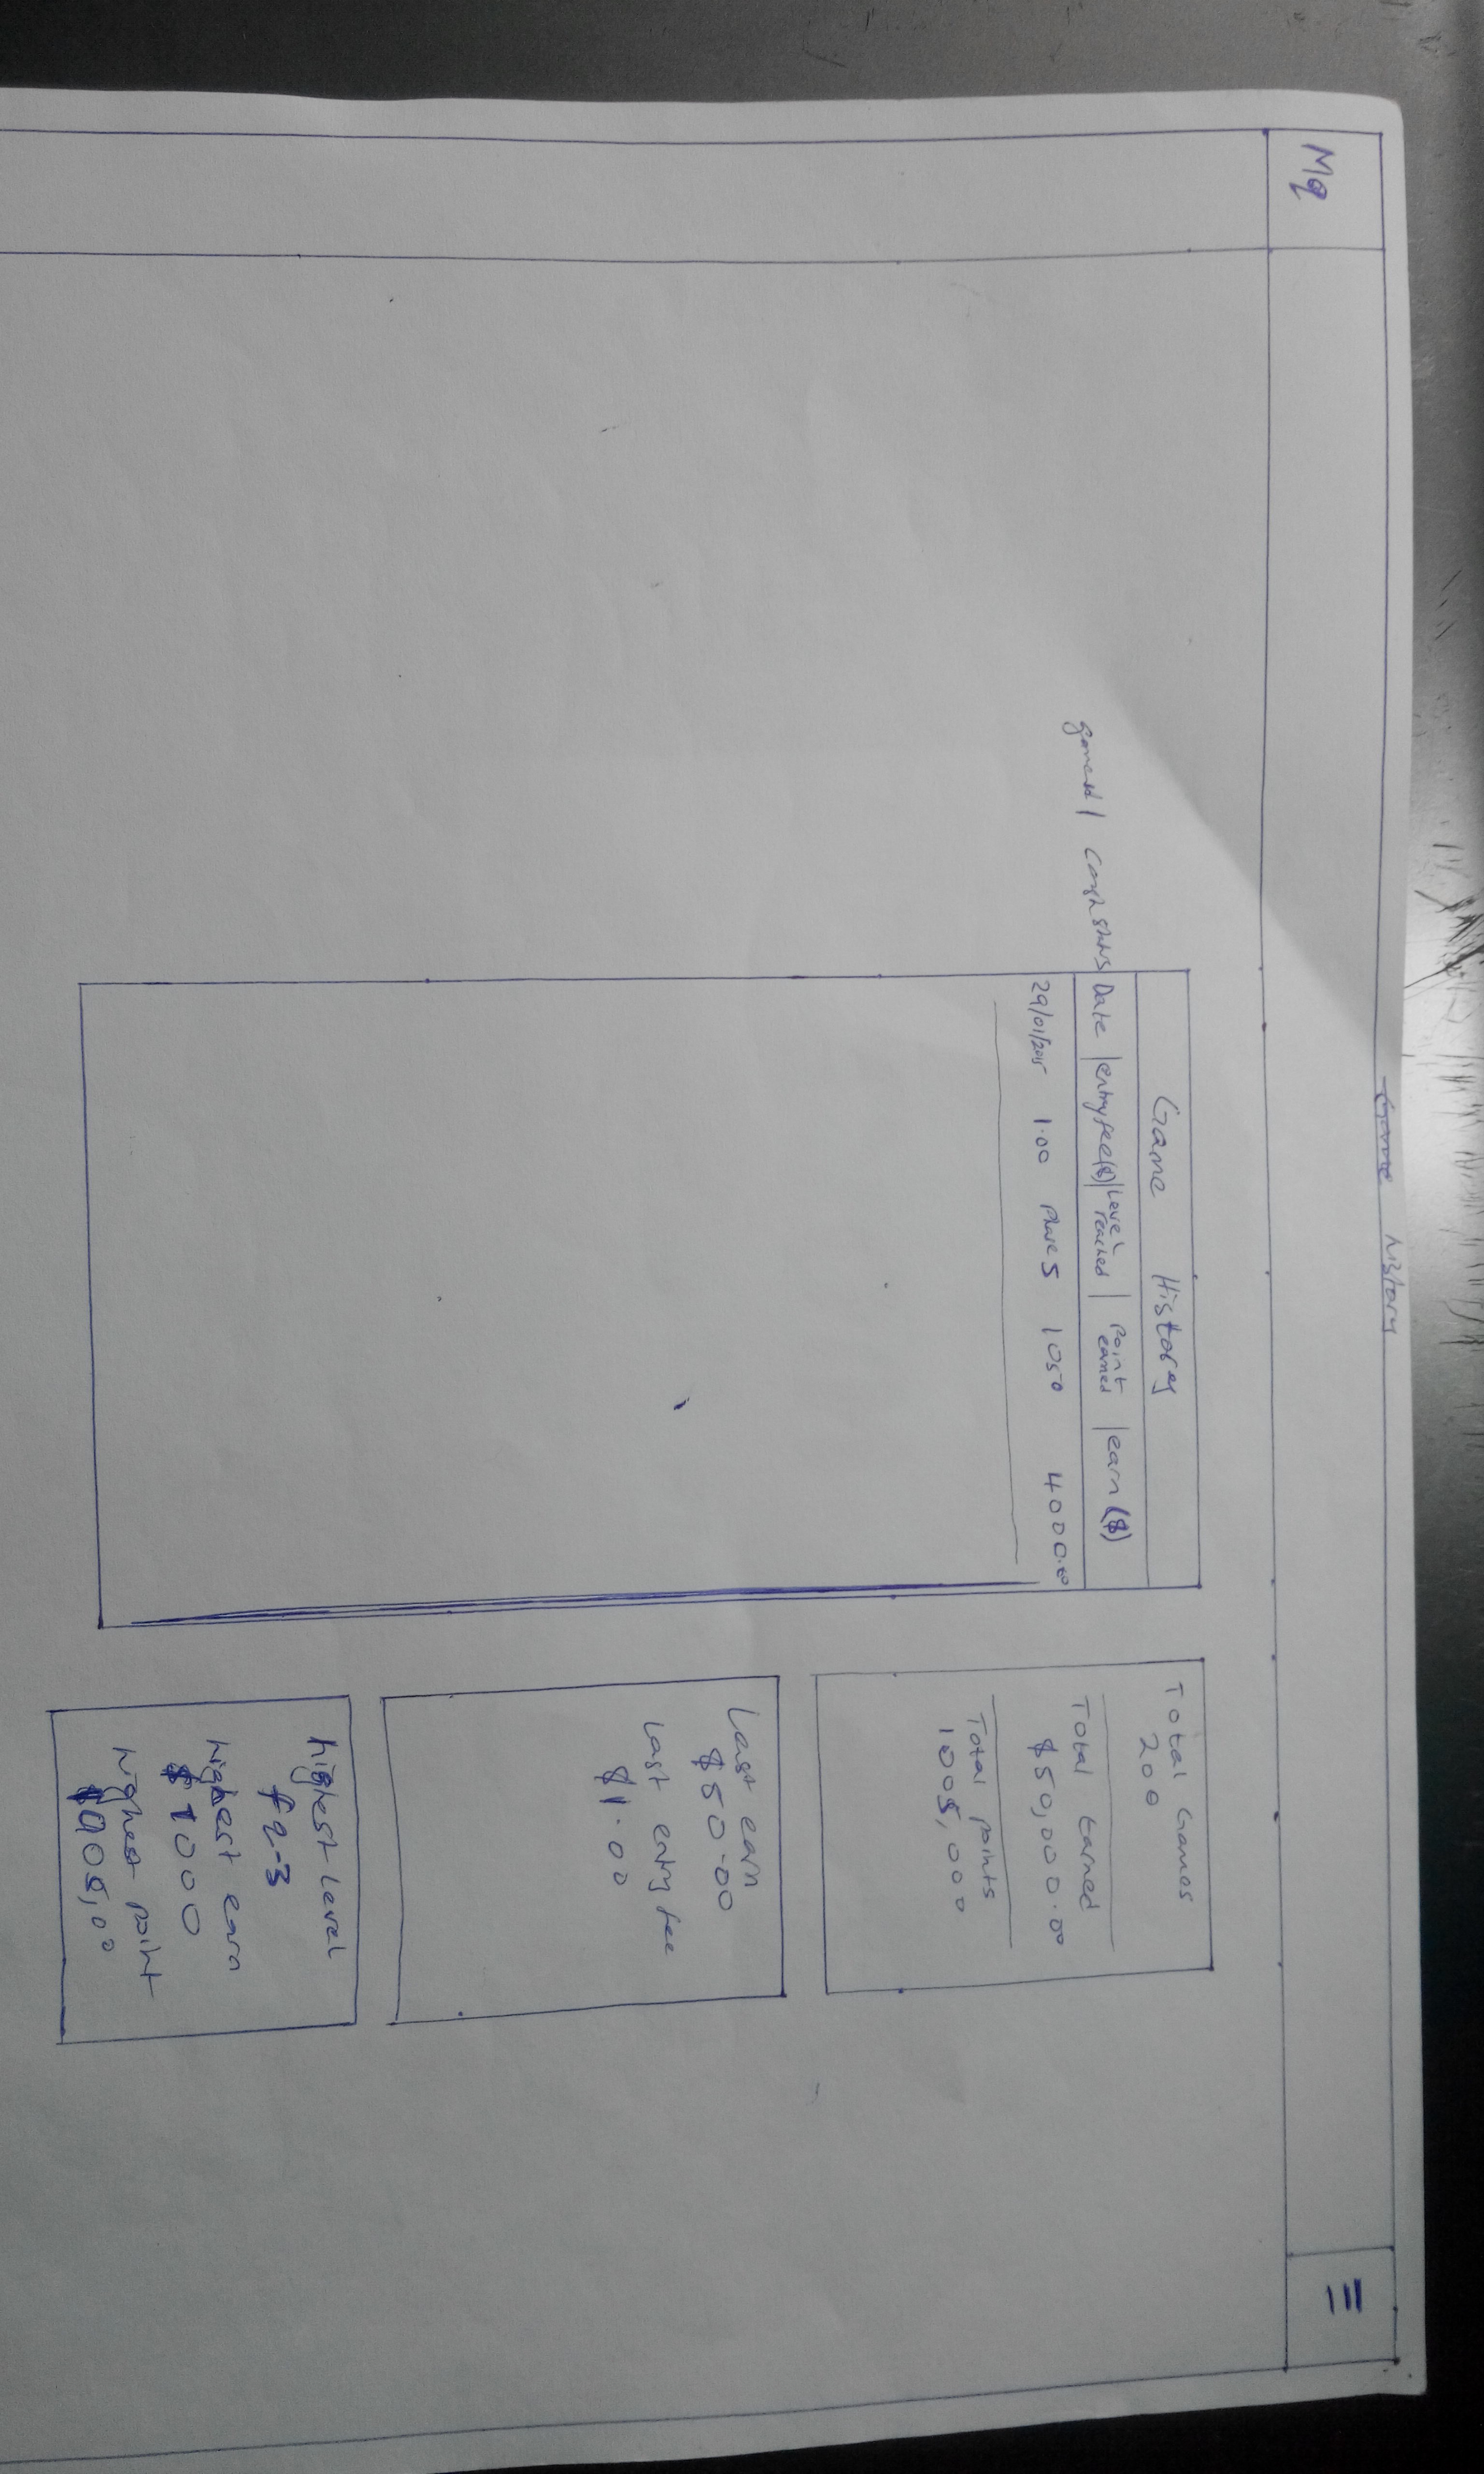 Game History
Mq
Game History
gameid | Cash status Date | entry fee($) | Level reached | Point earned | earn ($)
29/01/2015 1.00 Phase 5 1050 4000.00
Total Games
200
Total Earned
$50,000.00
Total points
1005,000
Last earn
$50.00
Last entry fee
$1.00
highest Level
fq-3
highest earn
$1000
highest point